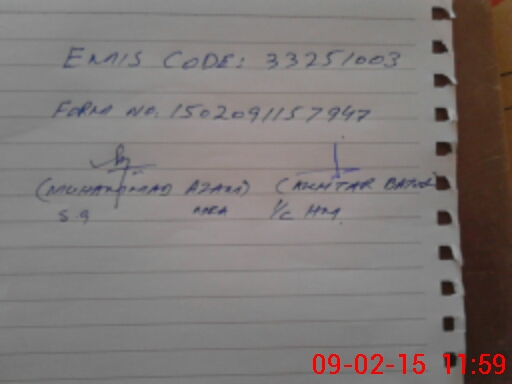 EMIS CODE: 33251003
FORM NO. 1502091157947
(MUHAMMAD AZAM) (AKHTAR BATOOL)
S.G MEA I/C HM
09-02-15 11:59